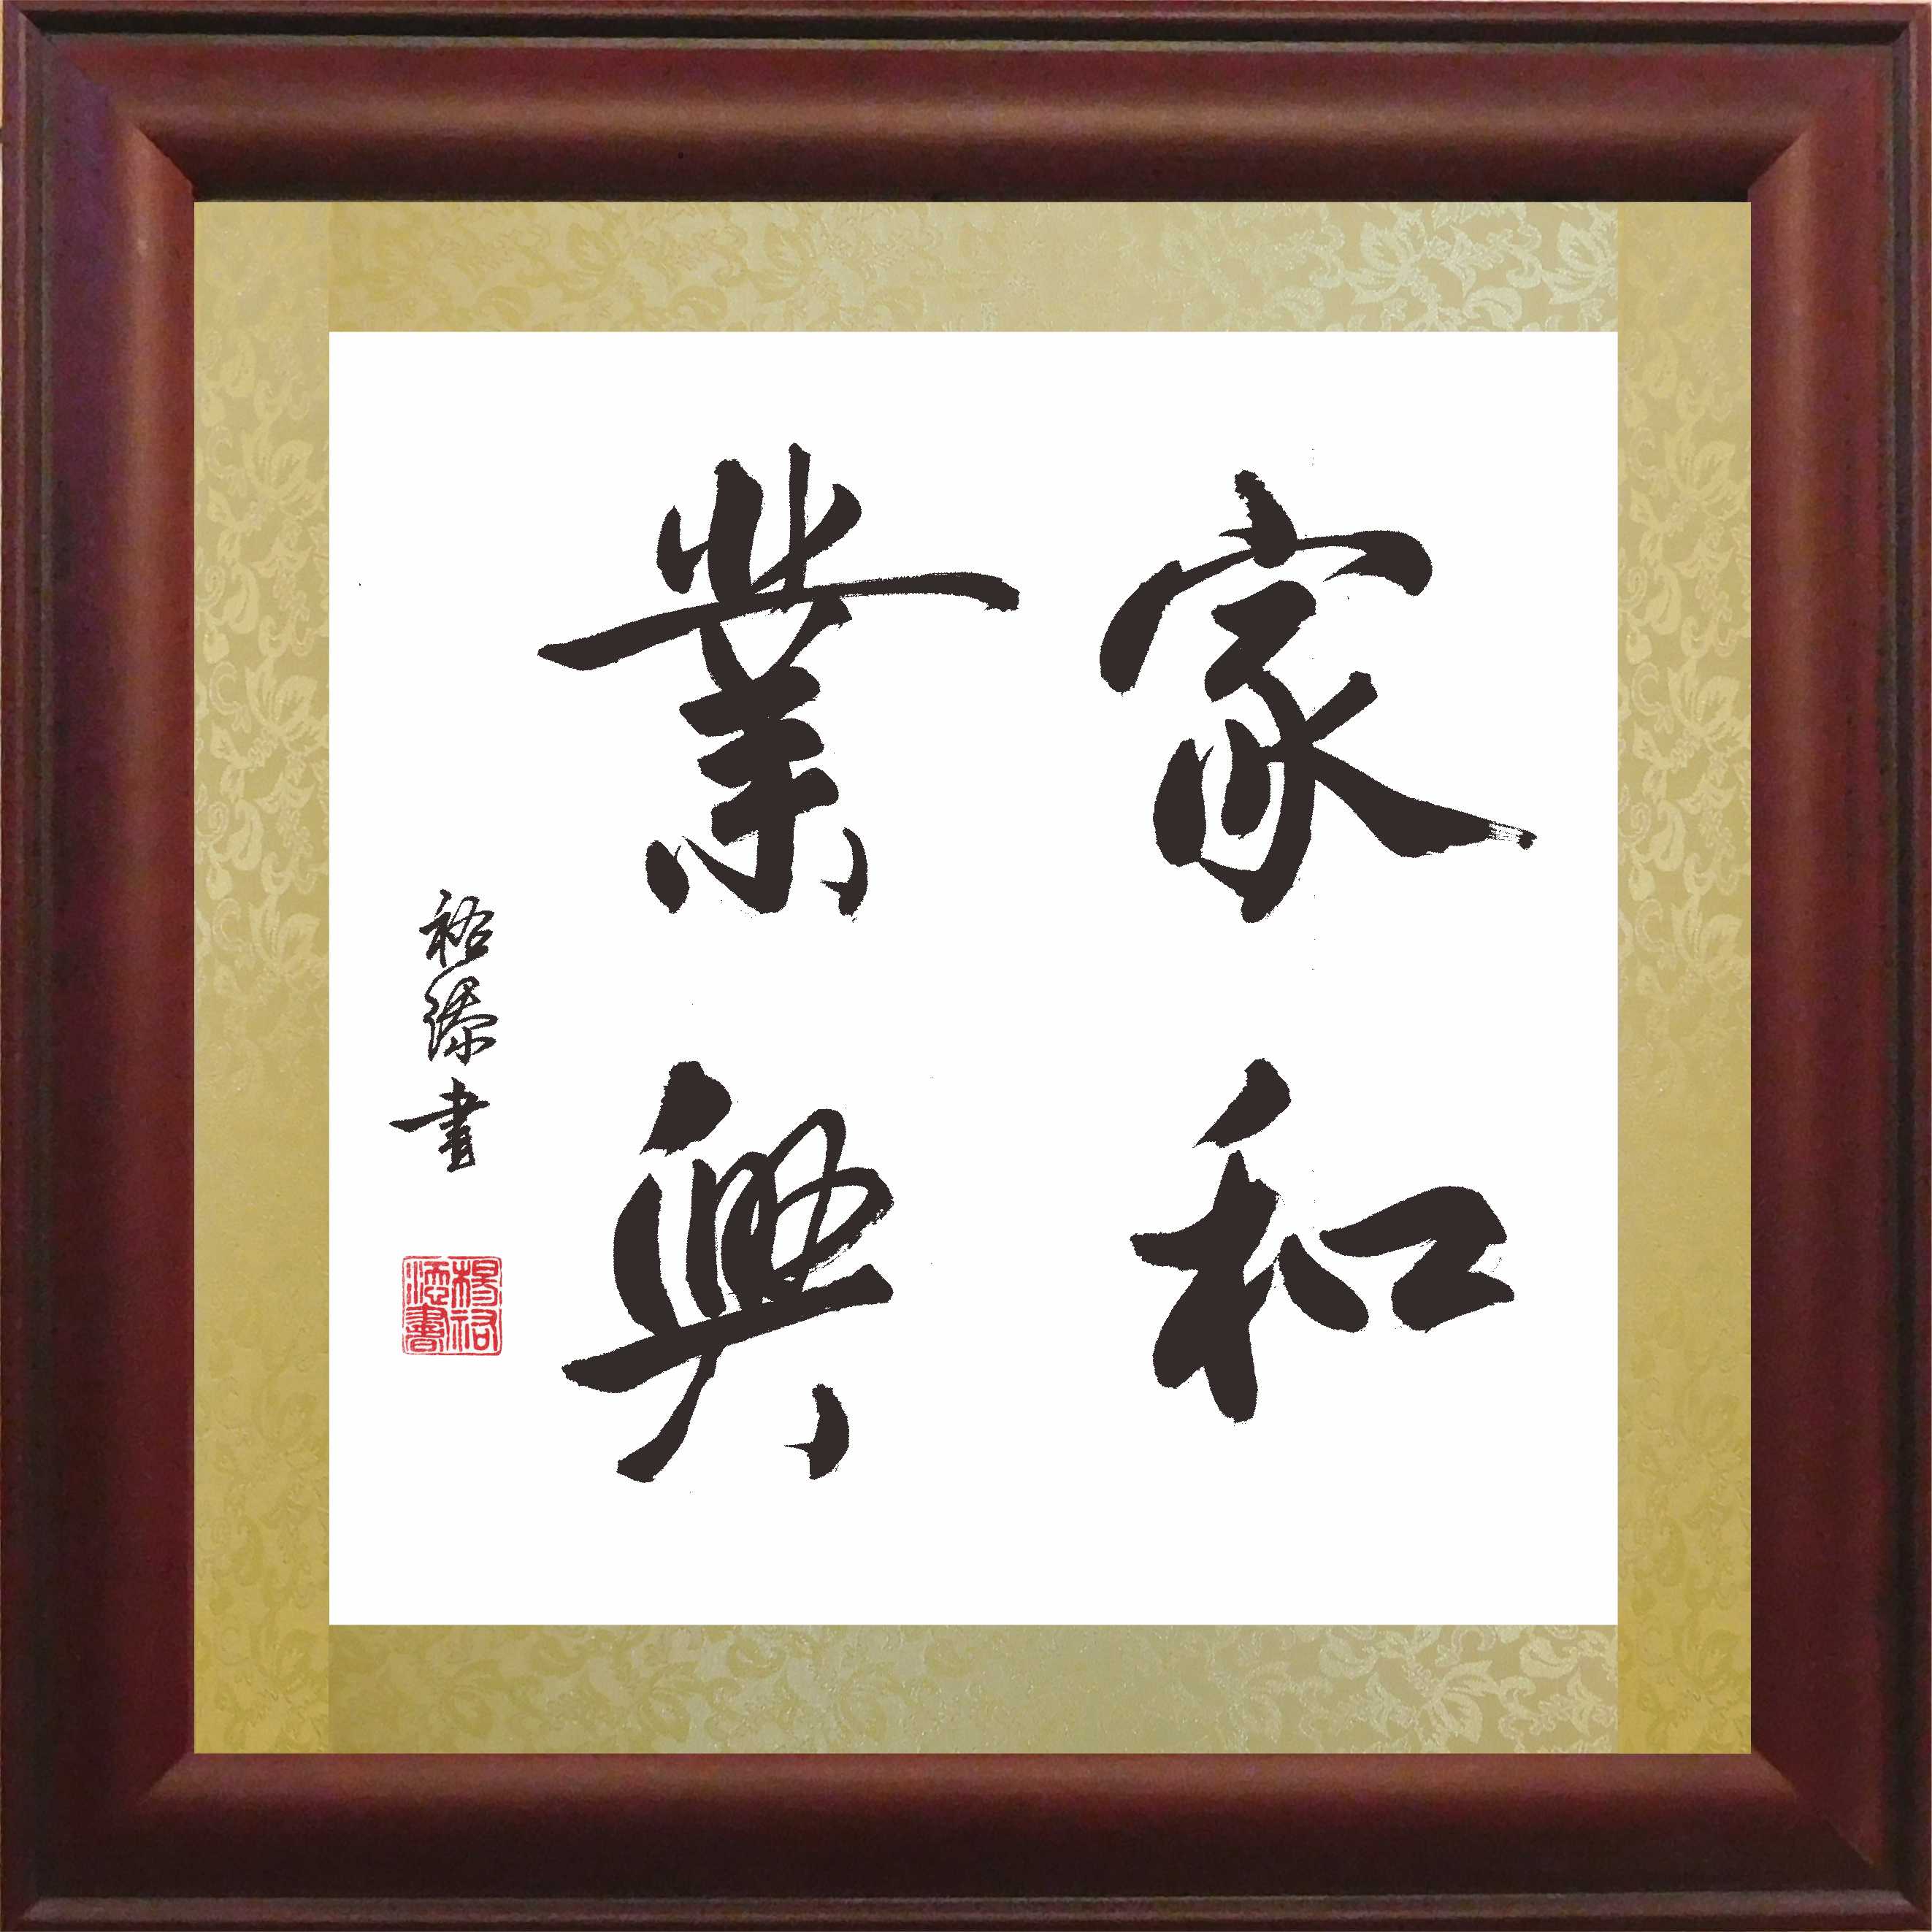 家和
業興
裕書
楊裕
書